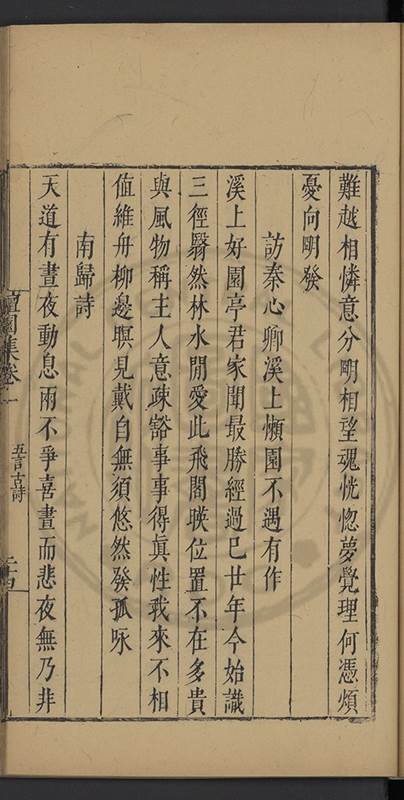 難越相憐意分明相望魂恍惚夢覺理何憑煩
憂向明發
訪秦心卿溪上懶園不遇有作
溪上好園亭君家聞最勝經過已廿年今始識
三徑翳然林水閒愛此飛閣暎位置不在多貴
與風物稱主人意疎豁事事得眞性我來不相
值維舟柳邊暝見戴自無須悠然發孤咏
南歸詩
天道有晝夜動息兩不爭喜晝而悲夜無乃非
園集卷一
五言古詩